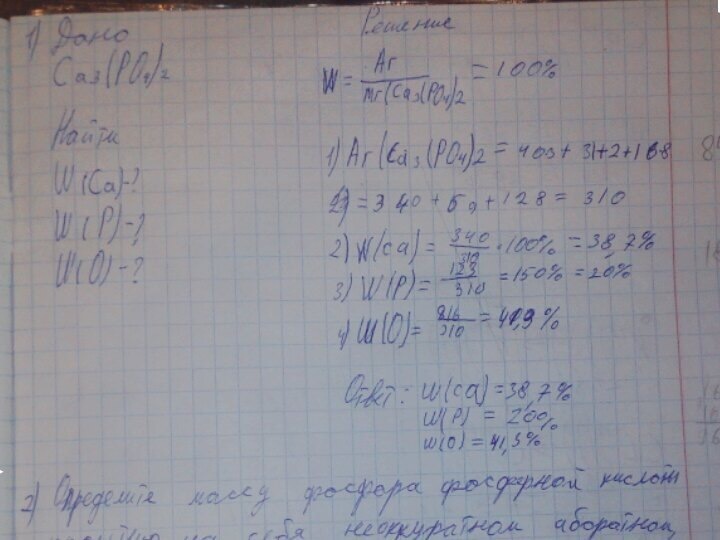 1) Дано
Ca3(PO4)2
Найти
W(Ca)-?
W(P)-?
W(O)-?
Решение
W = Ar / Mr(Ca3(PO4)2 = 100%
1) Ar(Ca3(PO4)2 = 403 + 31+2+168
= 340 + 6 + 128 = 310
2) W(Ca) = 340/310 · 100% = 38,7%
3) W(P) = 123/310 = 150% = 20%
4) W(O) = 816/310 = 41,9%
Ответ: W(Ca) = 38,7%
W(P) = 20%
W(O) = 41,9%
2) Определите массу фосфора фосфорной кислоты
на себя неоккуратном